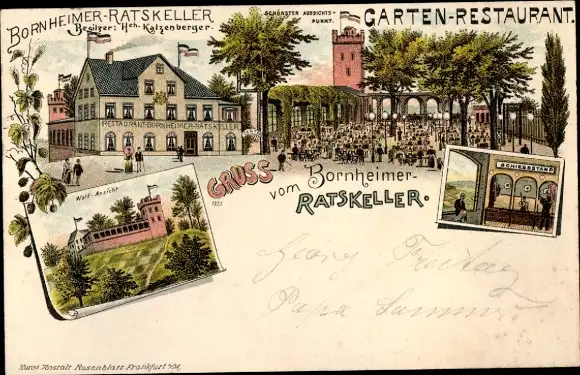 BORNHEIMER-RATSKELLER
Besitzer: Hch. Katzenberger.
SCHÖNSTER AUSSICHTS-
PUNKT.
GARTEN-RESTAURANT.
RESTAURANT-BORNHEIMER-RATSKELLER
SCHIESSSTAND
Wald-Ansicht
GRUSS
vom Bornheimer-
RATSKELLER.
Georg Freitag
Papa
Kunst Anstalt Rosenblatt Frankfurt a/M.